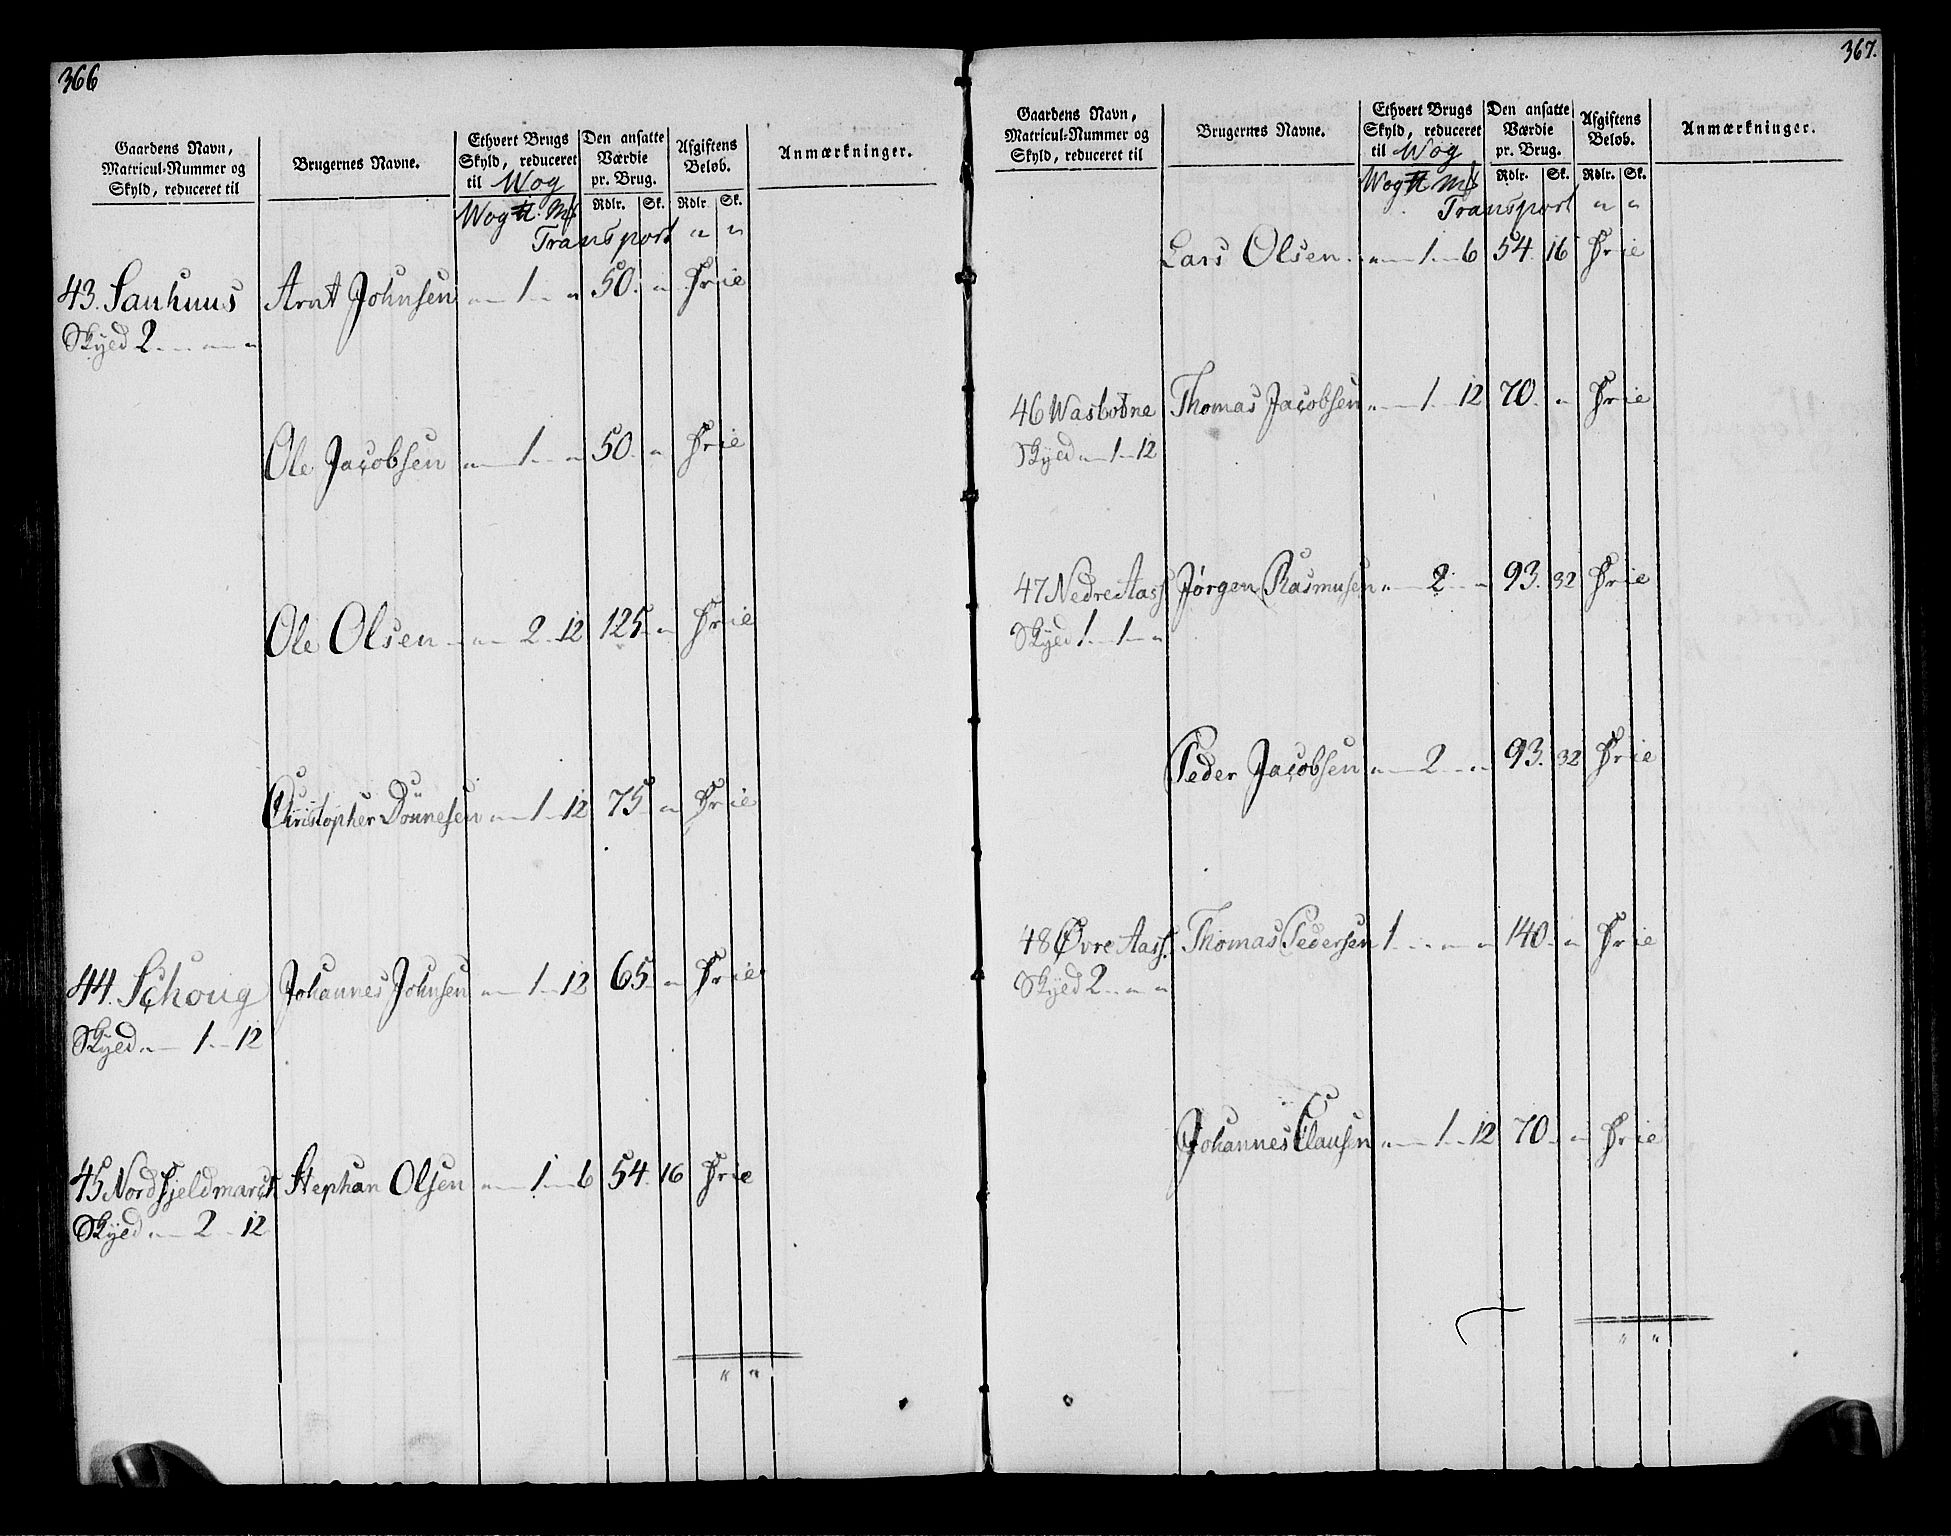 366
Gaardens Navn, Matricul-Nummer og Skyld, reduceret til
Brugernes Navne.
Ethvert Brugs Skyld, reduceret til Wog
Den ansatte Værdie pr. Brug.
Afgiftens Beløb.
Anmærkninger.
Wog ℔. Mk Rdlr. Sk. Rdlr Sk.
Transport " "
43. Sanhuus Arnt Johnsen " 1 " 50. " Frie
Skyld 2 " "
Ole Jacobsen " 1 " 50. " Frie
Ole Olsen " 2 12 125 " Frie
Christopher Dönnesen " 1 12 75 " Frie
44. Schoug Johannes Johnsen " 1 12 65 " Frie
Skyld " 1 12
45 Nordfjeldmarch Stephan Olsen " 1 6 54. 16 Frie
Skyld " 2 12
" "
367.
Gaardens Navn, Matricul-Nummer og Skyld, reduceret til
Brugernes Navne.
Ethvert Brugs Skyld, reduceret til Wog
Den ansatte Værdie pr. Brug.
Afgiftens Beløb.
Anmærkninger.
Wog ℔ Mk Rdlr. Sk. Rdlr. Sk.
Transport " "
Lars Olsen " 1 6 54. 16 Frie
46 Wasbotne Thomas Jacobsen " 1 12 70. " Frie
Skyld " 1 12
47 Nedre Aass Jørgen Rasmusen " 2 " 93. 32 Frie
Skyld 1 1 "
Peder Jacobsen " 2 " 93. 32 Frie
48 Øvre Aass. Thomas Pedersen 1 " " 140 " Frie
Skyld 2 " "
Johannes Clausen " 1 12 70 " Frie
" "